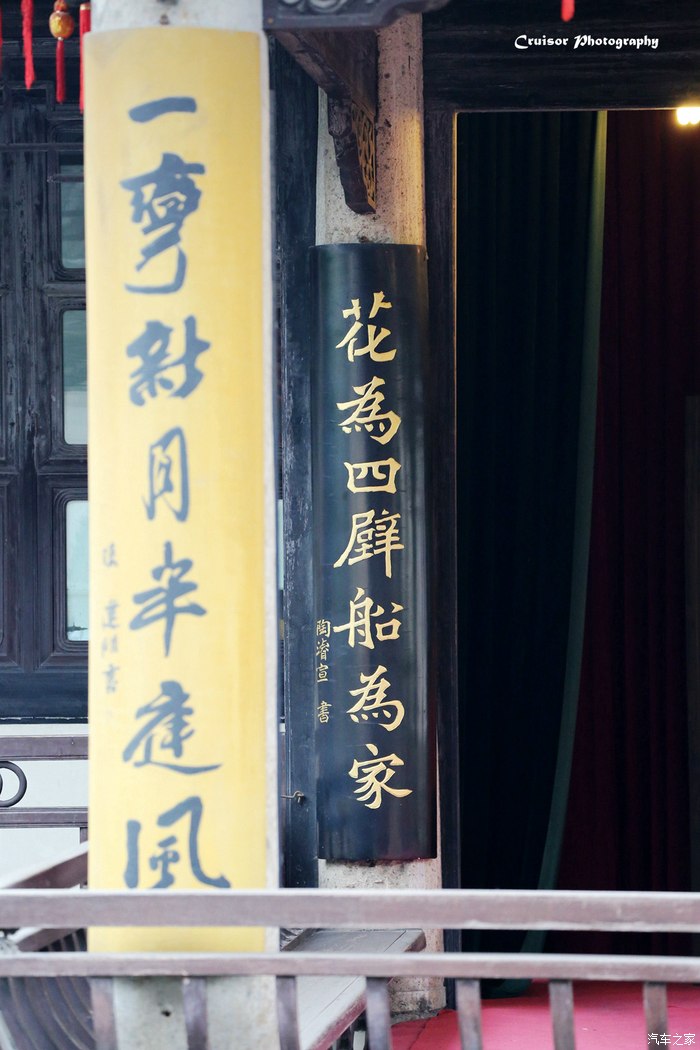 Cruisor Photography
一彎新月半庭風
花為四壁船為家
陶濬宣 書
汽车之家